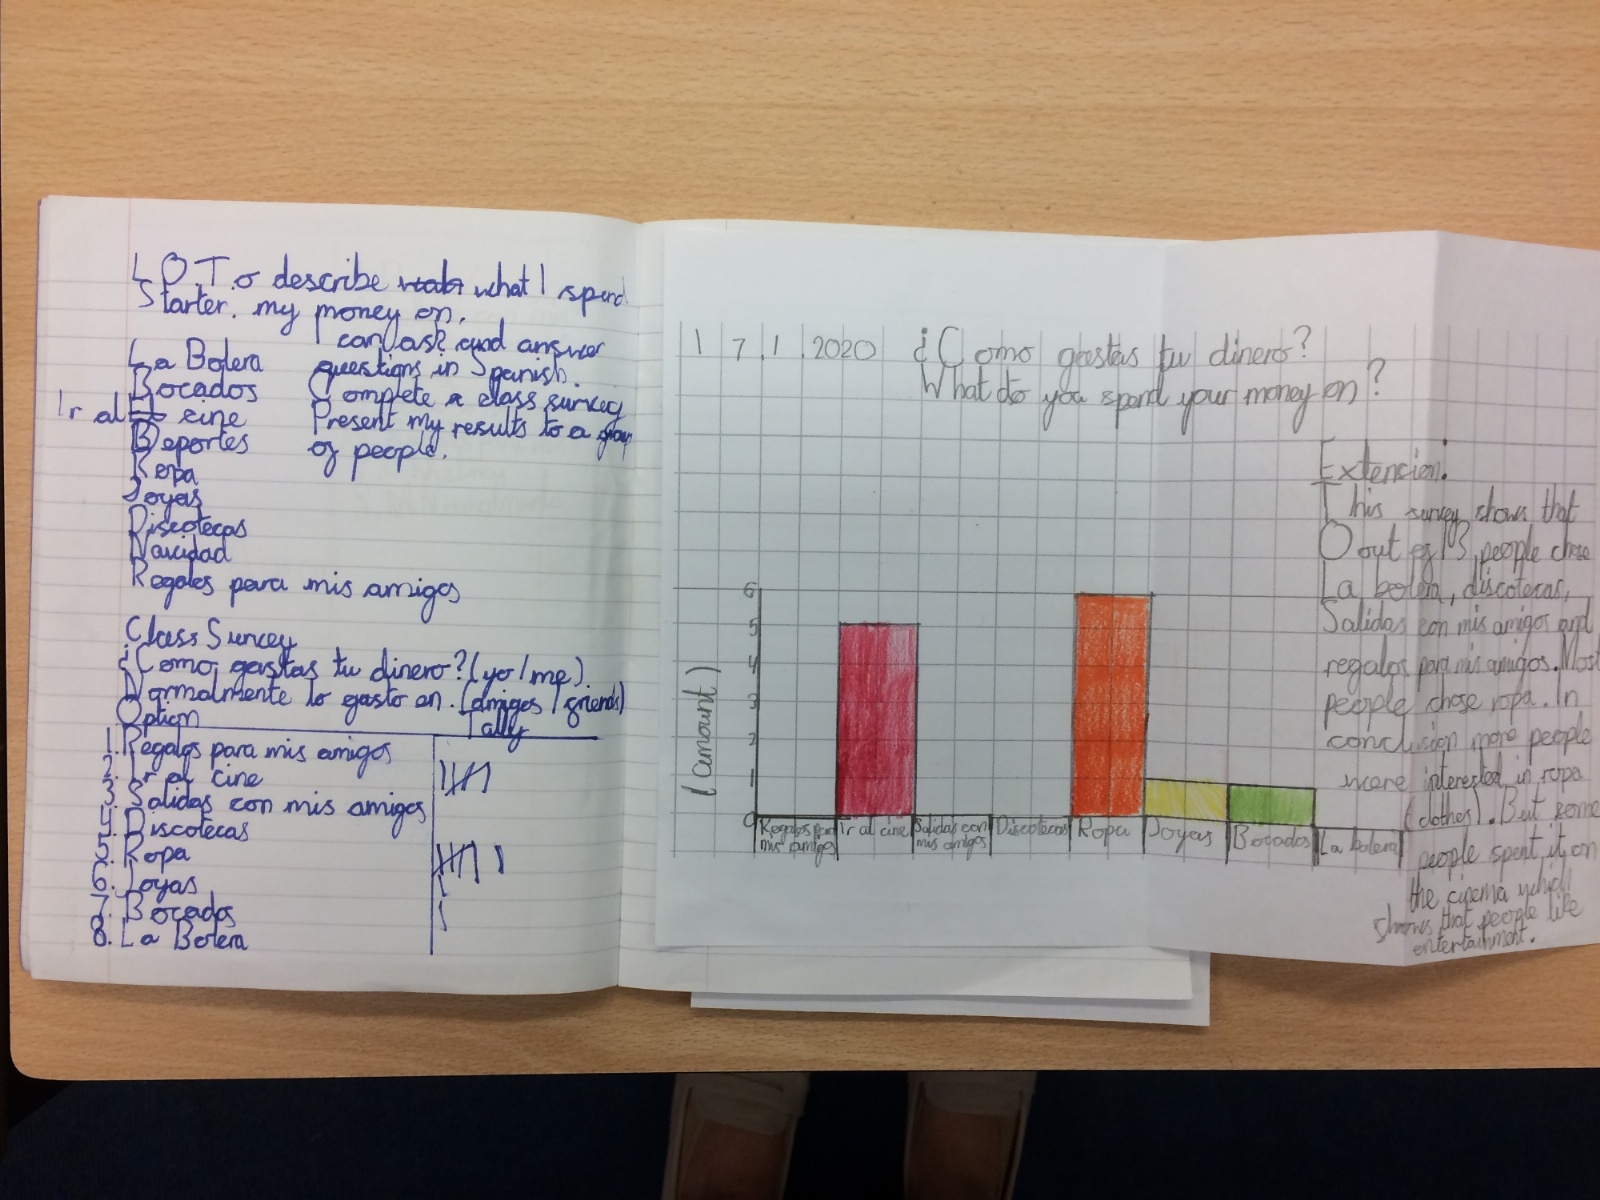 L.O. To describe what I spend
Starter. my money on.
I can ask and answer
La Bolera questions in Spanish.
Bocados Complete a class survey
Ir al cine Present my results to a group
Deportes of people.
Ropa
Joyas
Discotecas
Navidad
Regalos para mis amigos
Class Survey
¿Como gastas tu dinero? (yo/me)
Normalmente lo gasto en. (amigos / friends)
Option Tally
1. Regalos para mis amigos
2. Ir al cine
3. Salidas con mis amigos
4. Discotecas
5. Ropa
6. Joyas
7. Bocados
8. La Bolera
17.1.2020 ¿Como gastas tu dinero?
What do you spend your money on?
6
5
4
3
2
1
0
(amount)
Regalos para mis amigos
Ir al cine
Salidas con mis amigos
Discotecas
Ropa
Joyas
Bocados
La bolera
Extension.
This survey shows that
0 out of 13 people chose
La bolera, discotecas,
Salidas con mis amigos and
regalos para mis amigos. Most
people chose ropa. In
conclusion more people
were interested in ropa
(clothes). But some
people spent it on
the cinema which
shows that people like
entertainment.